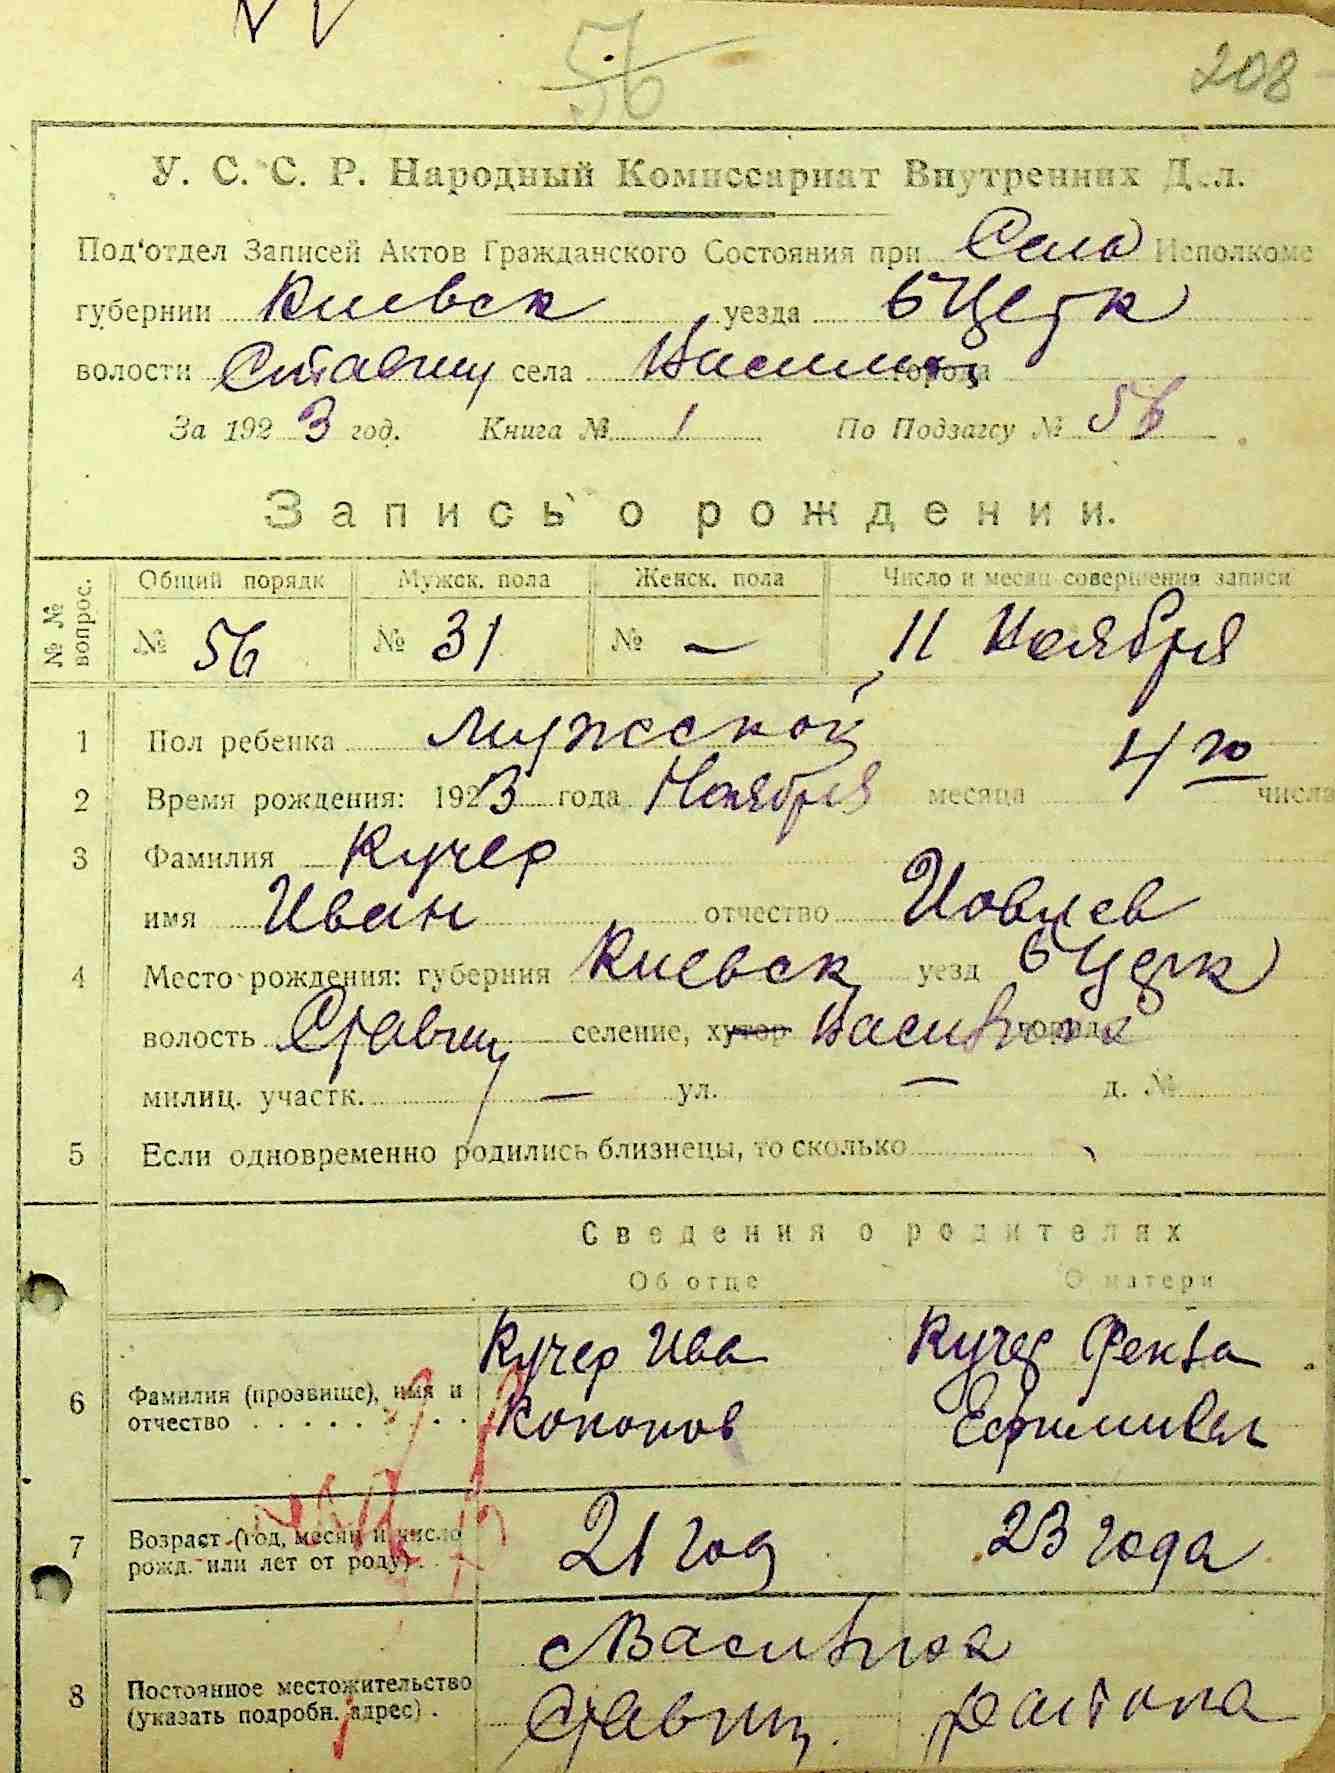 56
208
У. С. С. Р. Народный Комиссариат Внутренних Дел.
Под'отдел Записей Актов Гражданского Состояния при Село Исполкоме
губернии Киевск уезда бЦерк
волости Ставищ села города
За 1923 год. Книга № 1 По Подзагсу № 56
Запись о рождении.
№ № вопрос. Общий порядк Мужск. пола Женск. пола Число и месяц совершения записи
№ 56 № 31 № — 11 Ноября
1 Пол ребенка мужской
2 Время рождения: 1923 года Ноября месяца 4го числа
3 Фамилия Кучер
имя Иван отчество
4 Место рождения: губерния Киевск уезд бЦерк
волость Ставищ селение, хутор города
милиц. участк. — ул. — д. №
5 Если одновременно родились близнецы, то сколько
Сведения о родителях
Об отце О матери
6 Фамилия (прозвище), имя и Кучер Ива Кучер
отчество . . . . . . . . Кононов
7 Возраст (год, месяц и число 21 год 23 года
рожд. или лет от роду) .
8 Постоянное местожительство
(указать подробн. адрес) . Ставищ района